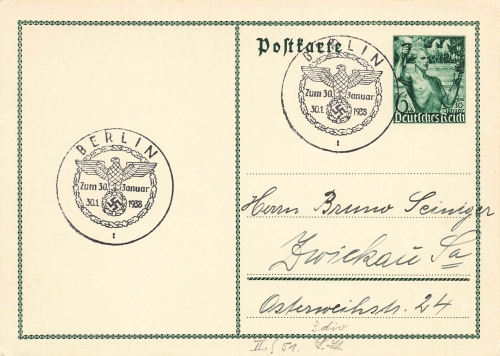 Postkarte
BERLIN
Zum 30. Januar
30.1. 1938
1
6
Deutsches Reich
BERLIN
Zum 30. Januar
30.1. 1938
1
Herrn Bruno Seiniger
Zwickau Sa
Osterweihstr. 24
3 div
II. 51.